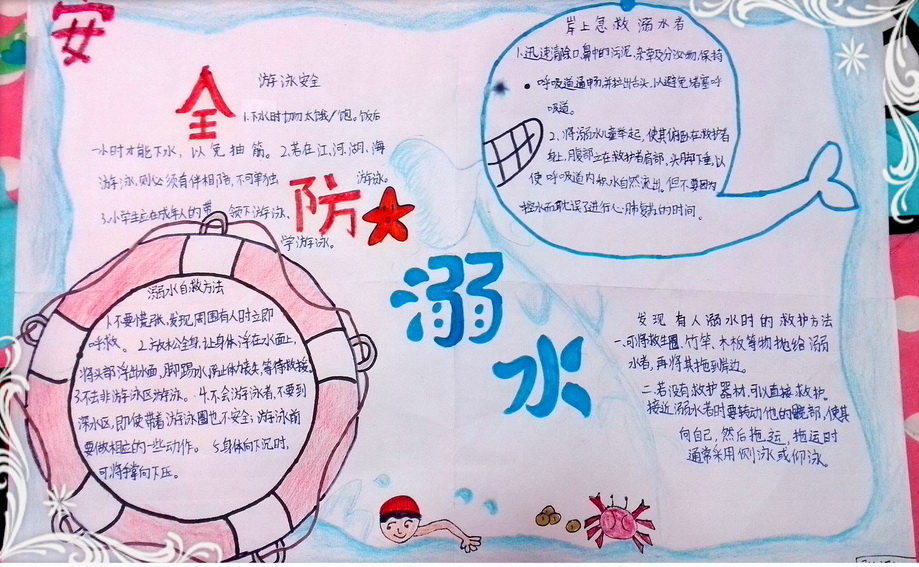 安
全
防
溺
水
游泳安全
1.下水时切勿太饿/饱。饭后
一小时才能下水,以免抽筋。2.若在江、河、湖、海
游泳,则必须有伴相陪,不可单独
游泳。
3.小学生应在成年人的带领下游泳、
学游泳。
岸上急救溺水者
1.迅速清除口鼻中的污泥、杂草及分泌物,保持
呼吸道通畅,并拉出舌头,以避免堵塞呼
吸道。
2.将溺水儿童举起,使其俯卧在救护者
肩上,腹部立在救护者肩部,头脚下垂,以
使呼吸道内积水自然流出,但不要因
控水而耽误了进行心肺复苏的时间。
溺水自救方法
1.不要慌张,发现周围有人时立即
呼救。2.放松全身,让身体浮在水面上,
将头部浮出水面,脚踢水,防止体力丧失,等待救援。
3.不去非游泳区游泳。4.不会游泳者,不要到
深水区,即使带着游泳圈也不安全,游泳前
要做相应的一些动作。5.身体向下沉时,
可将手掌向下压。
发现有人溺水时的救护方法
一、可将救生圈、竹竿、木板等物抛给溺
水者,再将其拖到岸边。
二.若没有救护器材,可以直接救护。
接近溺水者时要转动他的髋部,使其
向自己,然后拖运,拖运时
通常采用侧泳或仰泳。